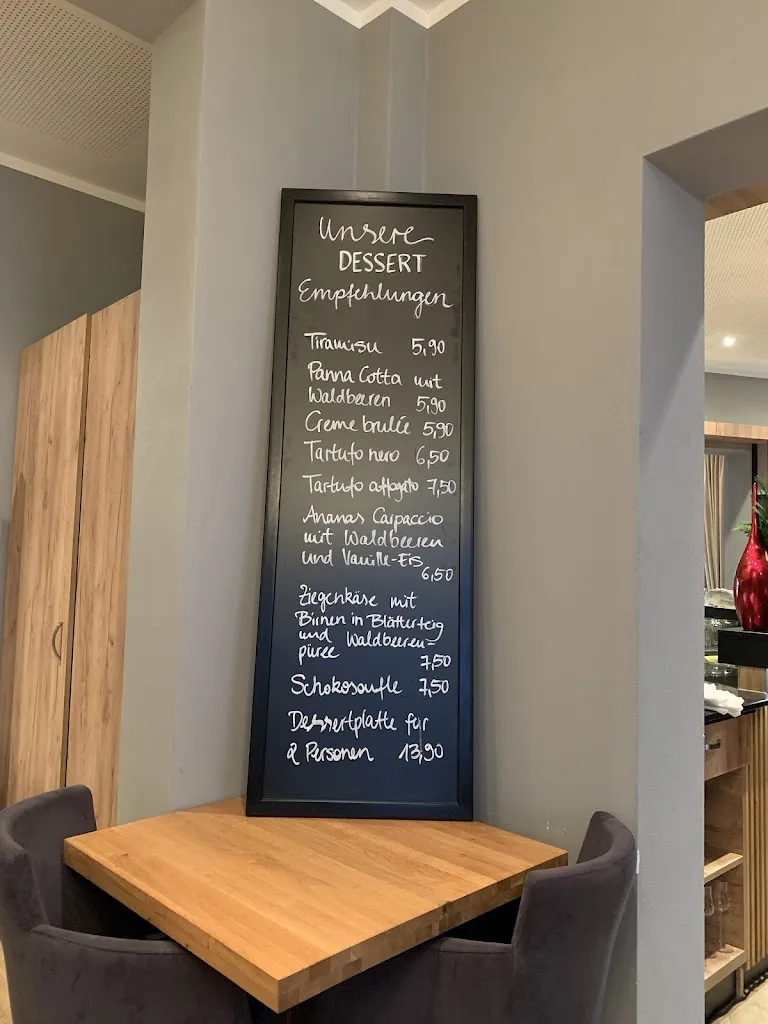 Unsere
DESSERT
Empfehlungen
Tiramisu 5,90
Panna Cotta mit
Waldbeeren 5,90
Creme brulée 5,90
Tartufo nero 6,50
Tartufo affogato 7,50
Ananas Carpaccio
mit Waldbeeren
und Vanille-Eis
6,50
Ziegenkäse mit
Birnen in Blätterteig
und Waldbeeren=
püree
7,50
Schokosoufle 7,50
Dessertplatte für
2 Personen 13,90